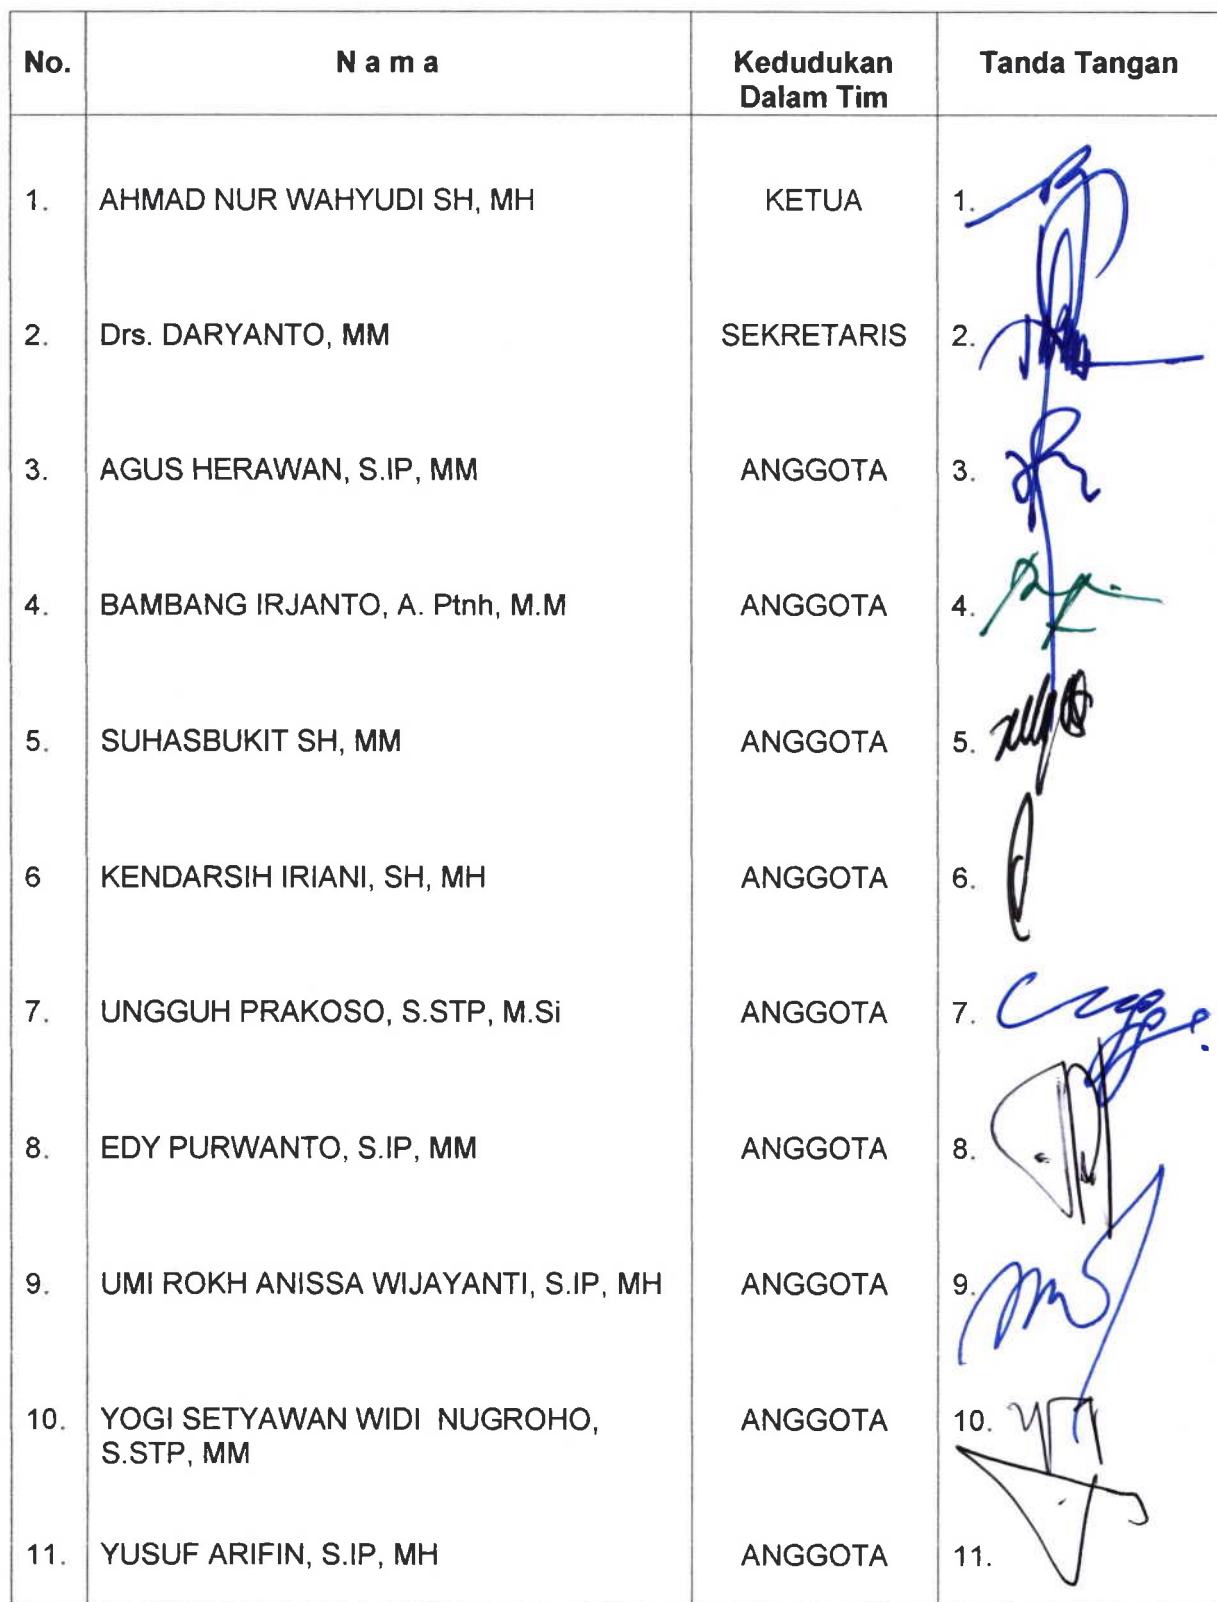 No. N a m a Kedudukan Dalam Tim Tanda Tangan
1. AHMAD NUR WAHYUDI SH, MH KETUA 1.
2. Drs. DARYANTO, MM SEKRETARIS 2.
3. AGUS HERAWAN, S.IP, MM ANGGOTA 3.
4. BAMBANG IRJANTO, A. Ptnh, M.M ANGGOTA 4.
5. SUHASBUKIT SH, MM ANGGOTA 5.
6 KENDARSIH IRIANI, SH, MH ANGGOTA 6.
7. UNGGUH PRAKOSO, S.STP, M.Si ANGGOTA 7.
8. EDY PURWANTO, S.IP, MM ANGGOTA 8.
9. UMI ROKH ANISSA WIJAYANTI, S.IP, MH ANGGOTA 9.
10. YOGI SETYAWAN WIDI NUGROHO, ANGGOTA 10.
S.STP, MM
11. YUSUF ARIFIN, S.IP, MH ANGGOTA 11.